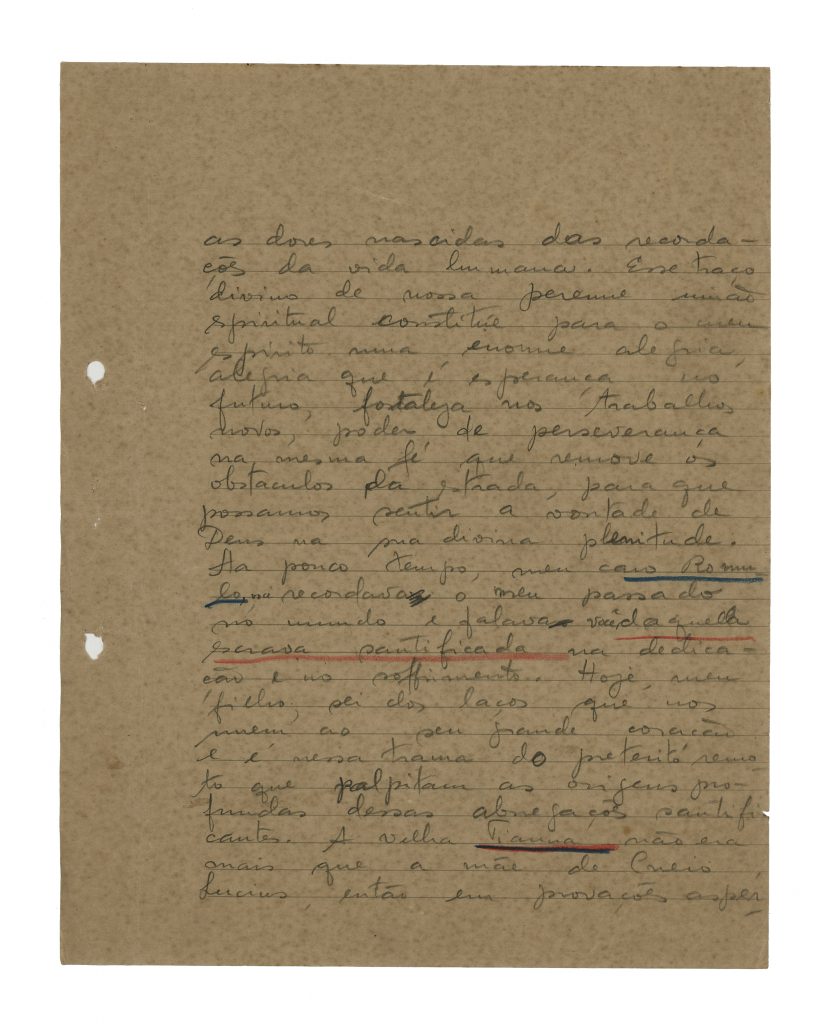 as dores nascidas das recorda-
ções da vida humana. Esse traço
divino de nossa perenne união
espiritual constitue para o meu
espirito uma enorme alegria,
alegria que é esperança no
futuro, fortaleza nos trabalhos
novos, poder de perseverança
na mesma fé que remove os
obstaculos da estrada, para que
possamos sentir a vontade de
Deus na sua divina plenitude.
Ha pouco tempo, meu caro Romu-
lo, recordava o meu passado
no mundo e falava daquella
escrava santificada na dedica-
ção e no soffrimento. Hoje, meu
filho, sei dos laços que nos
unem ao seu grande coração
e é nessa trama do preterito remo-
to que palpitam as origens pro-
fundas dessas abnegações santifi
cantes. A velha não era
mais que a mãe de Cneio
Lucius, então em provações asper-